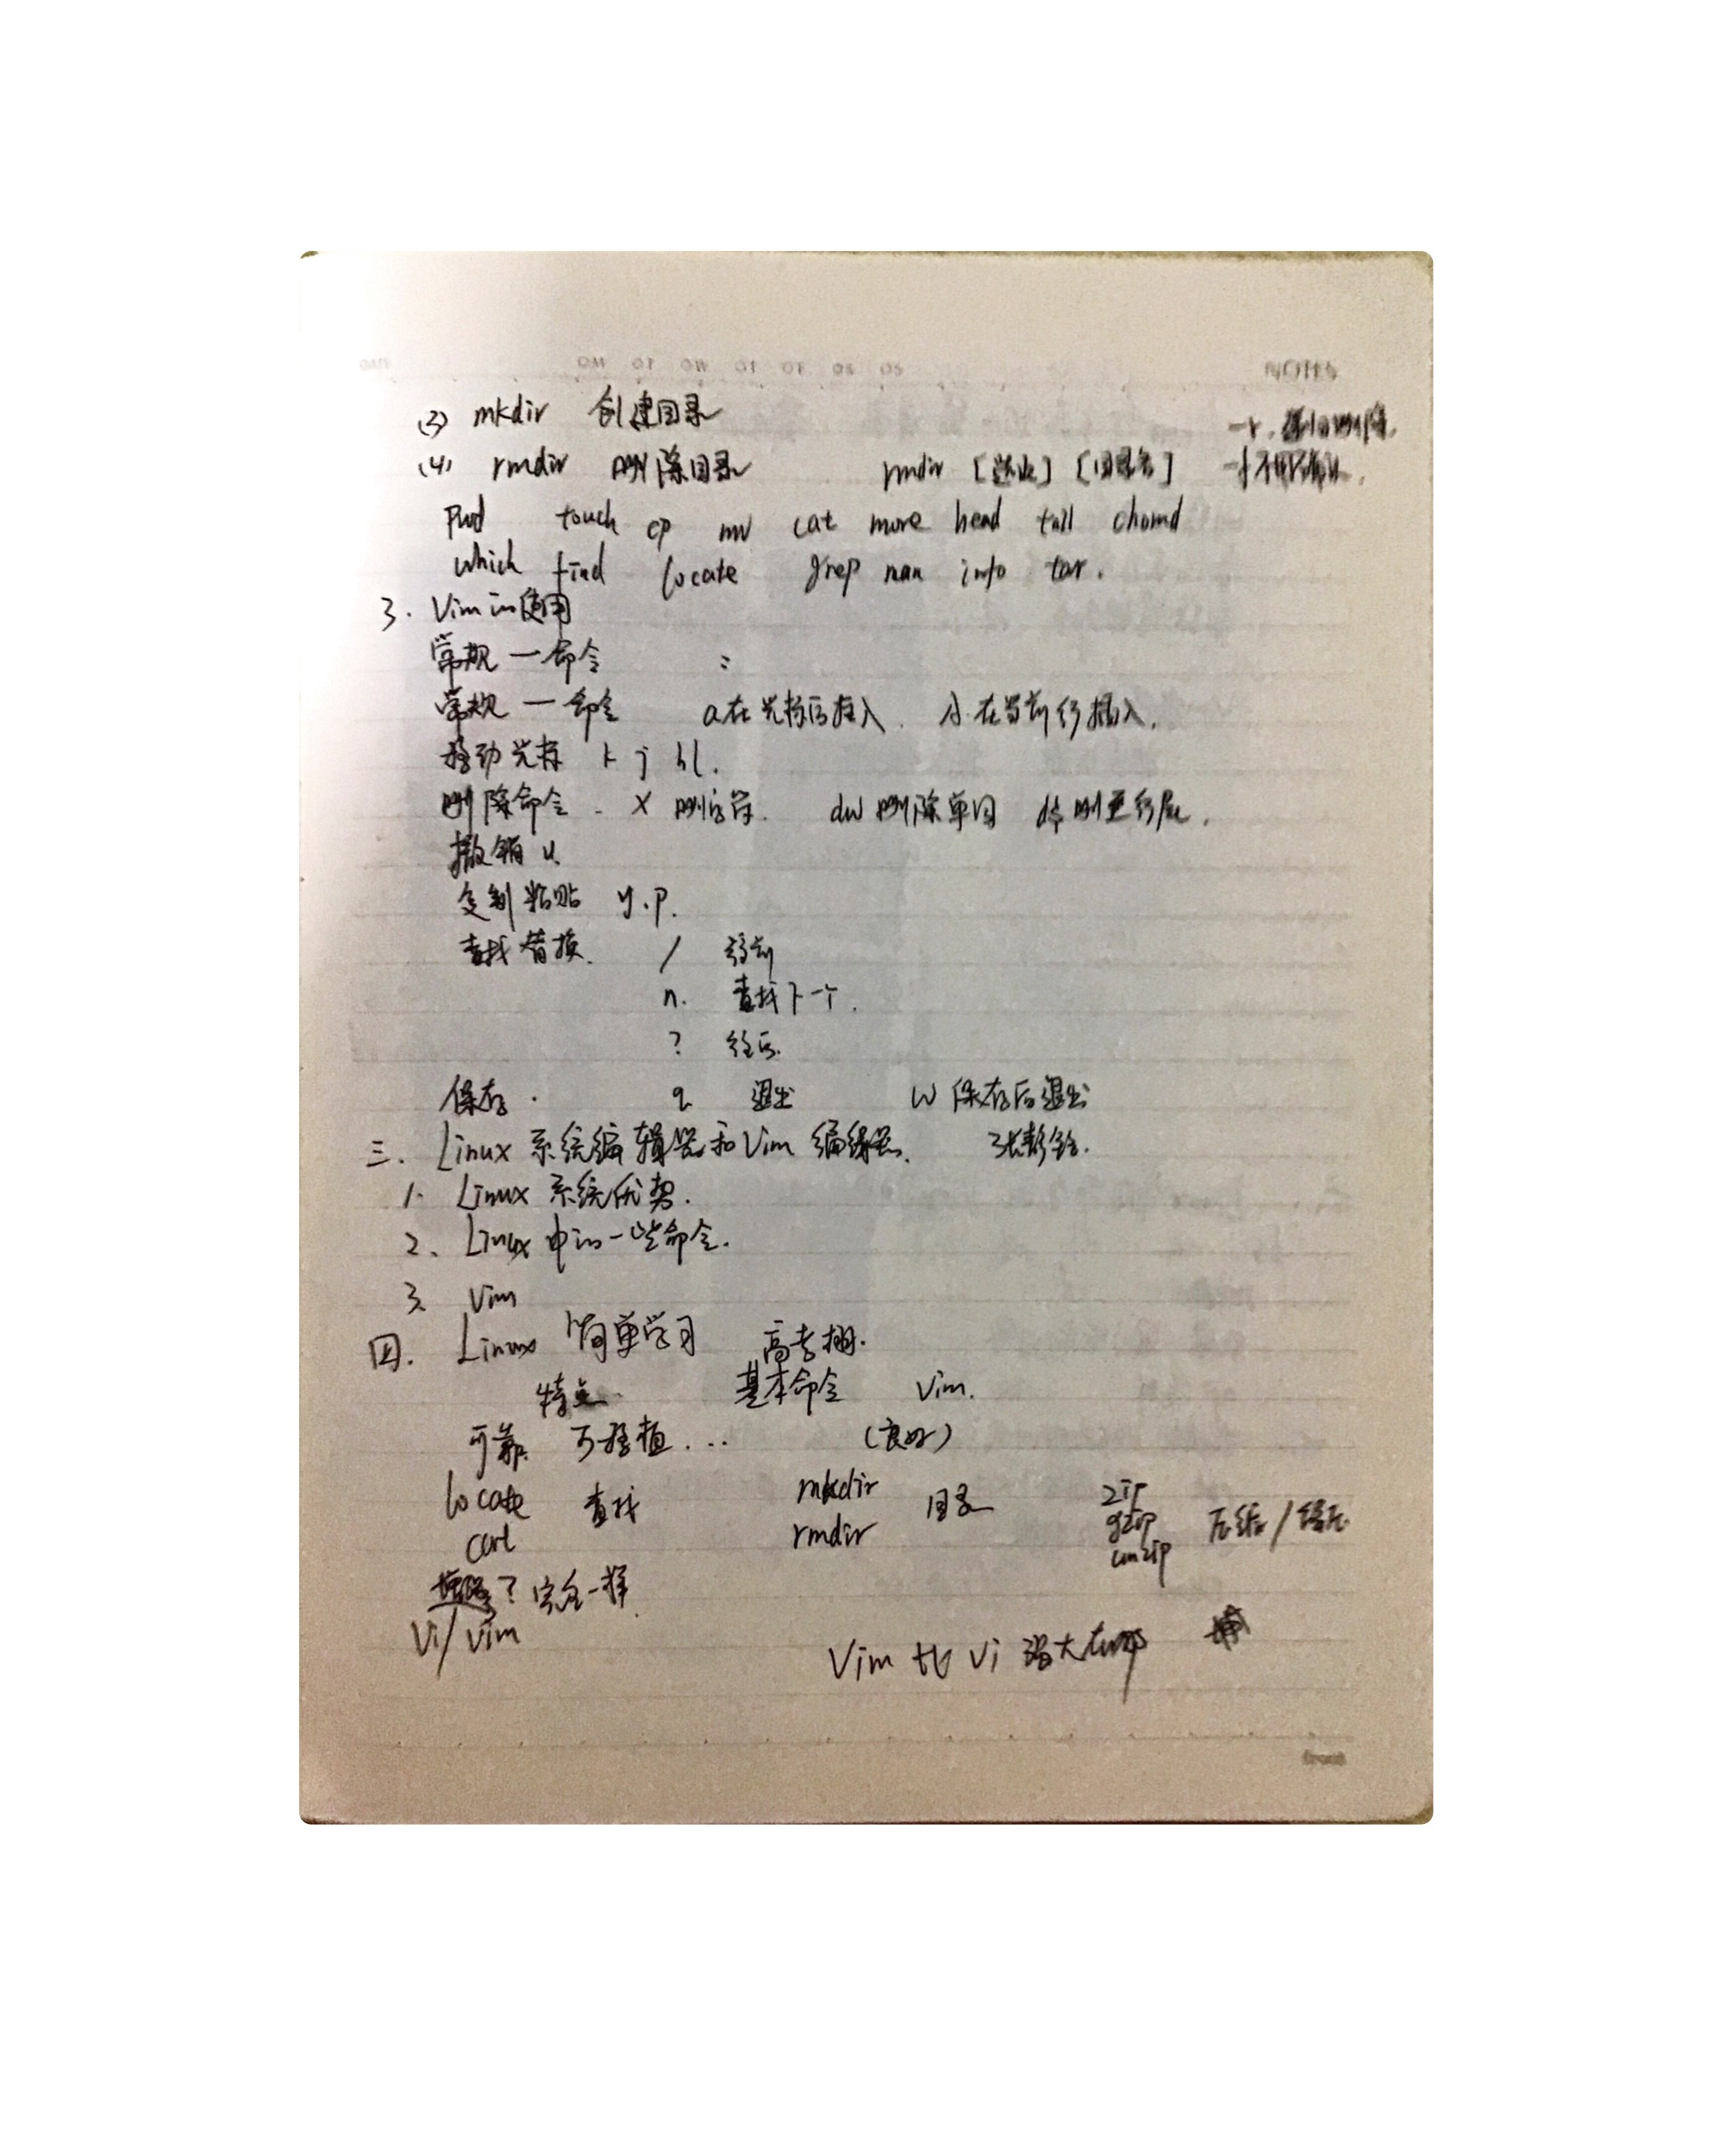 (3) mkdir 创建目录
(4) rmdir 删除目录 rmdir [选项] [目录名]
pwd touch cp mv cat more head tail chomd
which find locate grep man info tar.
3. Vim的使用
常规一命令 :
常规一命令 a在光标后插入. A在当前行插入.
移动光标 k j h l.
删除命令. x 删字符. dw 删除单词 d$ 删至行尾.
撤销 u
复制粘贴 y.p.
查找替换. /
n. 查找下一个.
? 往后.
保存. q 退出 w 保存后退出
三. Linux 系统编辑器和Vim 编辑器.
1. Linux 系统优势.
2. Linux 中的一些命令.
3. Vim
四. Linux 简单学习
特点. 基本命令 Vim.
可靠. 可移植... (良好)
locate 查找 mkdir 目录 zip
rmdir gzip 压缩/
unzip
? 完全一样.
Vi/Vim
Vim 比 Vi 强大